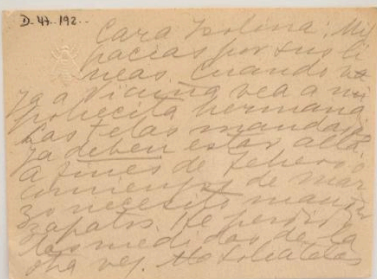 D-44-192.
Cara Isolina: Mil
gracias por sus lí
neas. Cuando va
ya a Vicuña vea a mi
pobrecita hermana
Las telas mandadas
ya deben estar allá.
a fines de febrero o
comienzos de mar
zo necesito mandar
zapatos. He perdido
las medidas de la
otra vez.